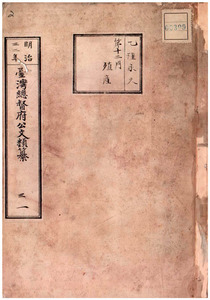 乙種永久
第十二門
殖産
明治
年
臺灣總督府公文類纂
之一